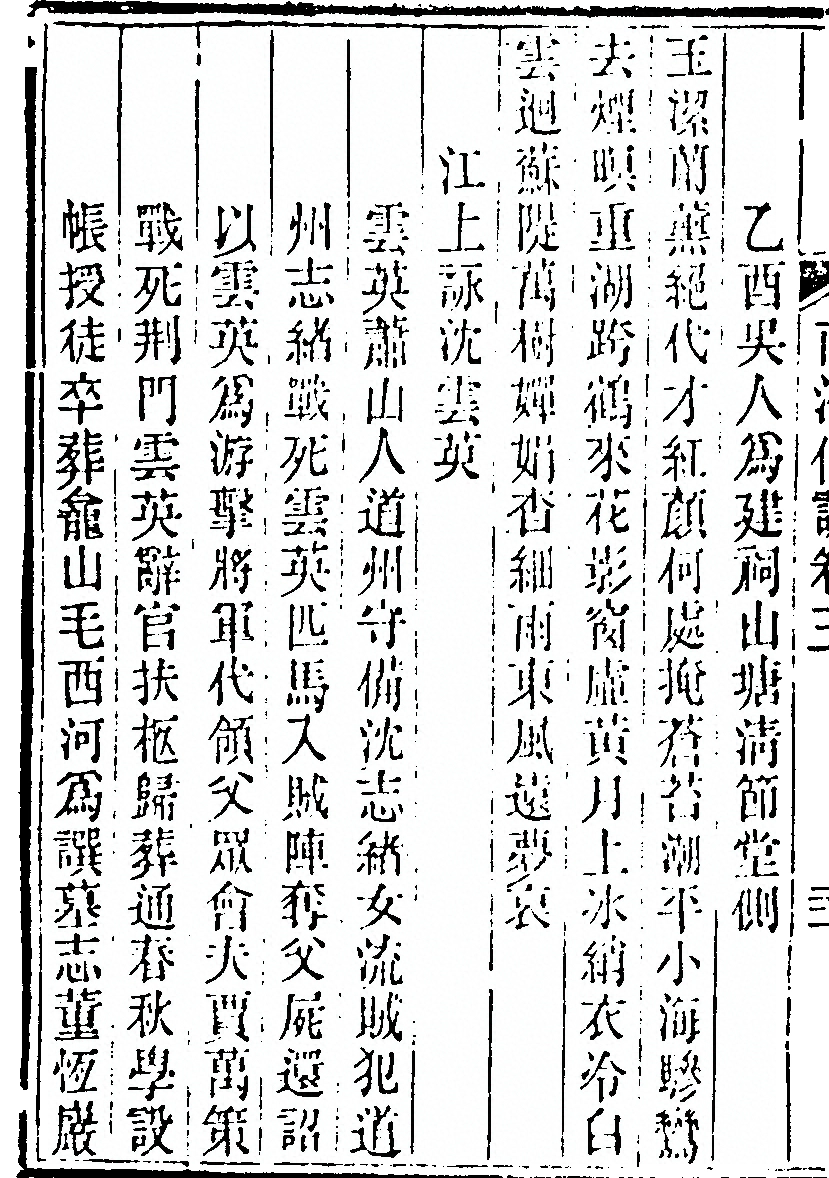 乙酉吳人為建祠山塘清節堂側
玉潔蘭薰絕代才紅顏何處掩蒼苔潮平小海驂鸞
去煙暝重湖跨鶴來花影窗虛黃月上冰綃衣冷白
雲迴蘇隄萬樹嬋娟杳細雨東風遠夢哀
江上詠沈雲英
雲英蕭山人道州守備沈志緒女流賊犯道
州志緒戰死雲英匹馬入賊陣奪父屍還詔
以雲英為游擊將軍代領父眾會夫賈萬策
戰死荆門雲英辭官扶柩歸葬通春秋學設
帳授徒卒葬龕山毛西河為譔墓志董恆巖